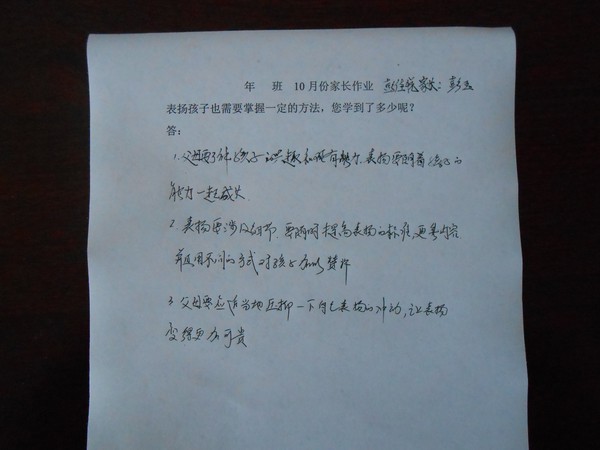 年 班 10月份家长作业 家长:彭
表扬孩子也需要掌握一定的方法，您学到了多少呢？
答：
1.父母要了解孩子的兴趣和现有能力.表扬要随着孩子的
能力一起成长.
2.表扬要涉及细节.要随时提高表扬的标准,更换内容
并且用不同的方式对孩子加以赞许
3.父母要适当地压抑一下自己表扬的冲动,让表扬
变得更加可贵